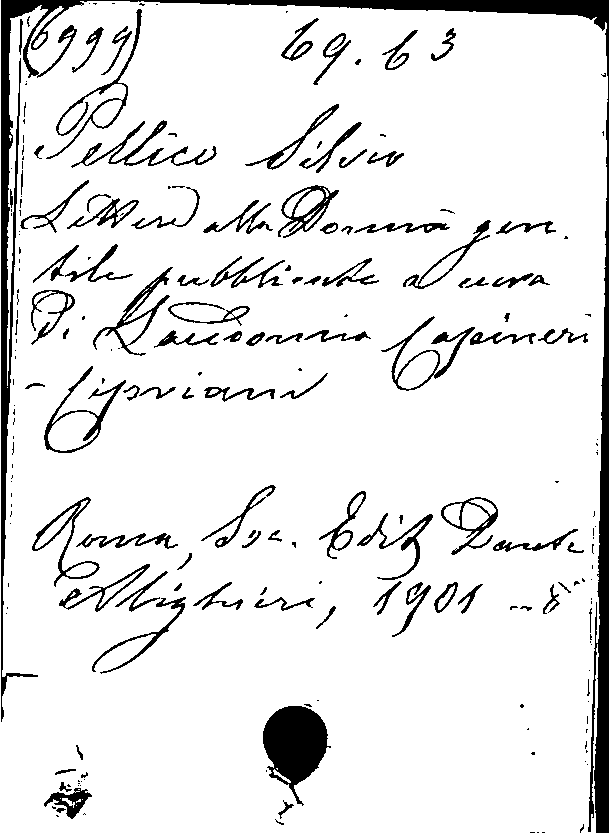 (6999) 69.63
Pellico Silvio
Lettere alla Donna gen-
tile pubblicate a cura
di Laudomia Capineri
-Cipriani
Roma, Soc. Edit. Dante
Alighieri, 1901 -8